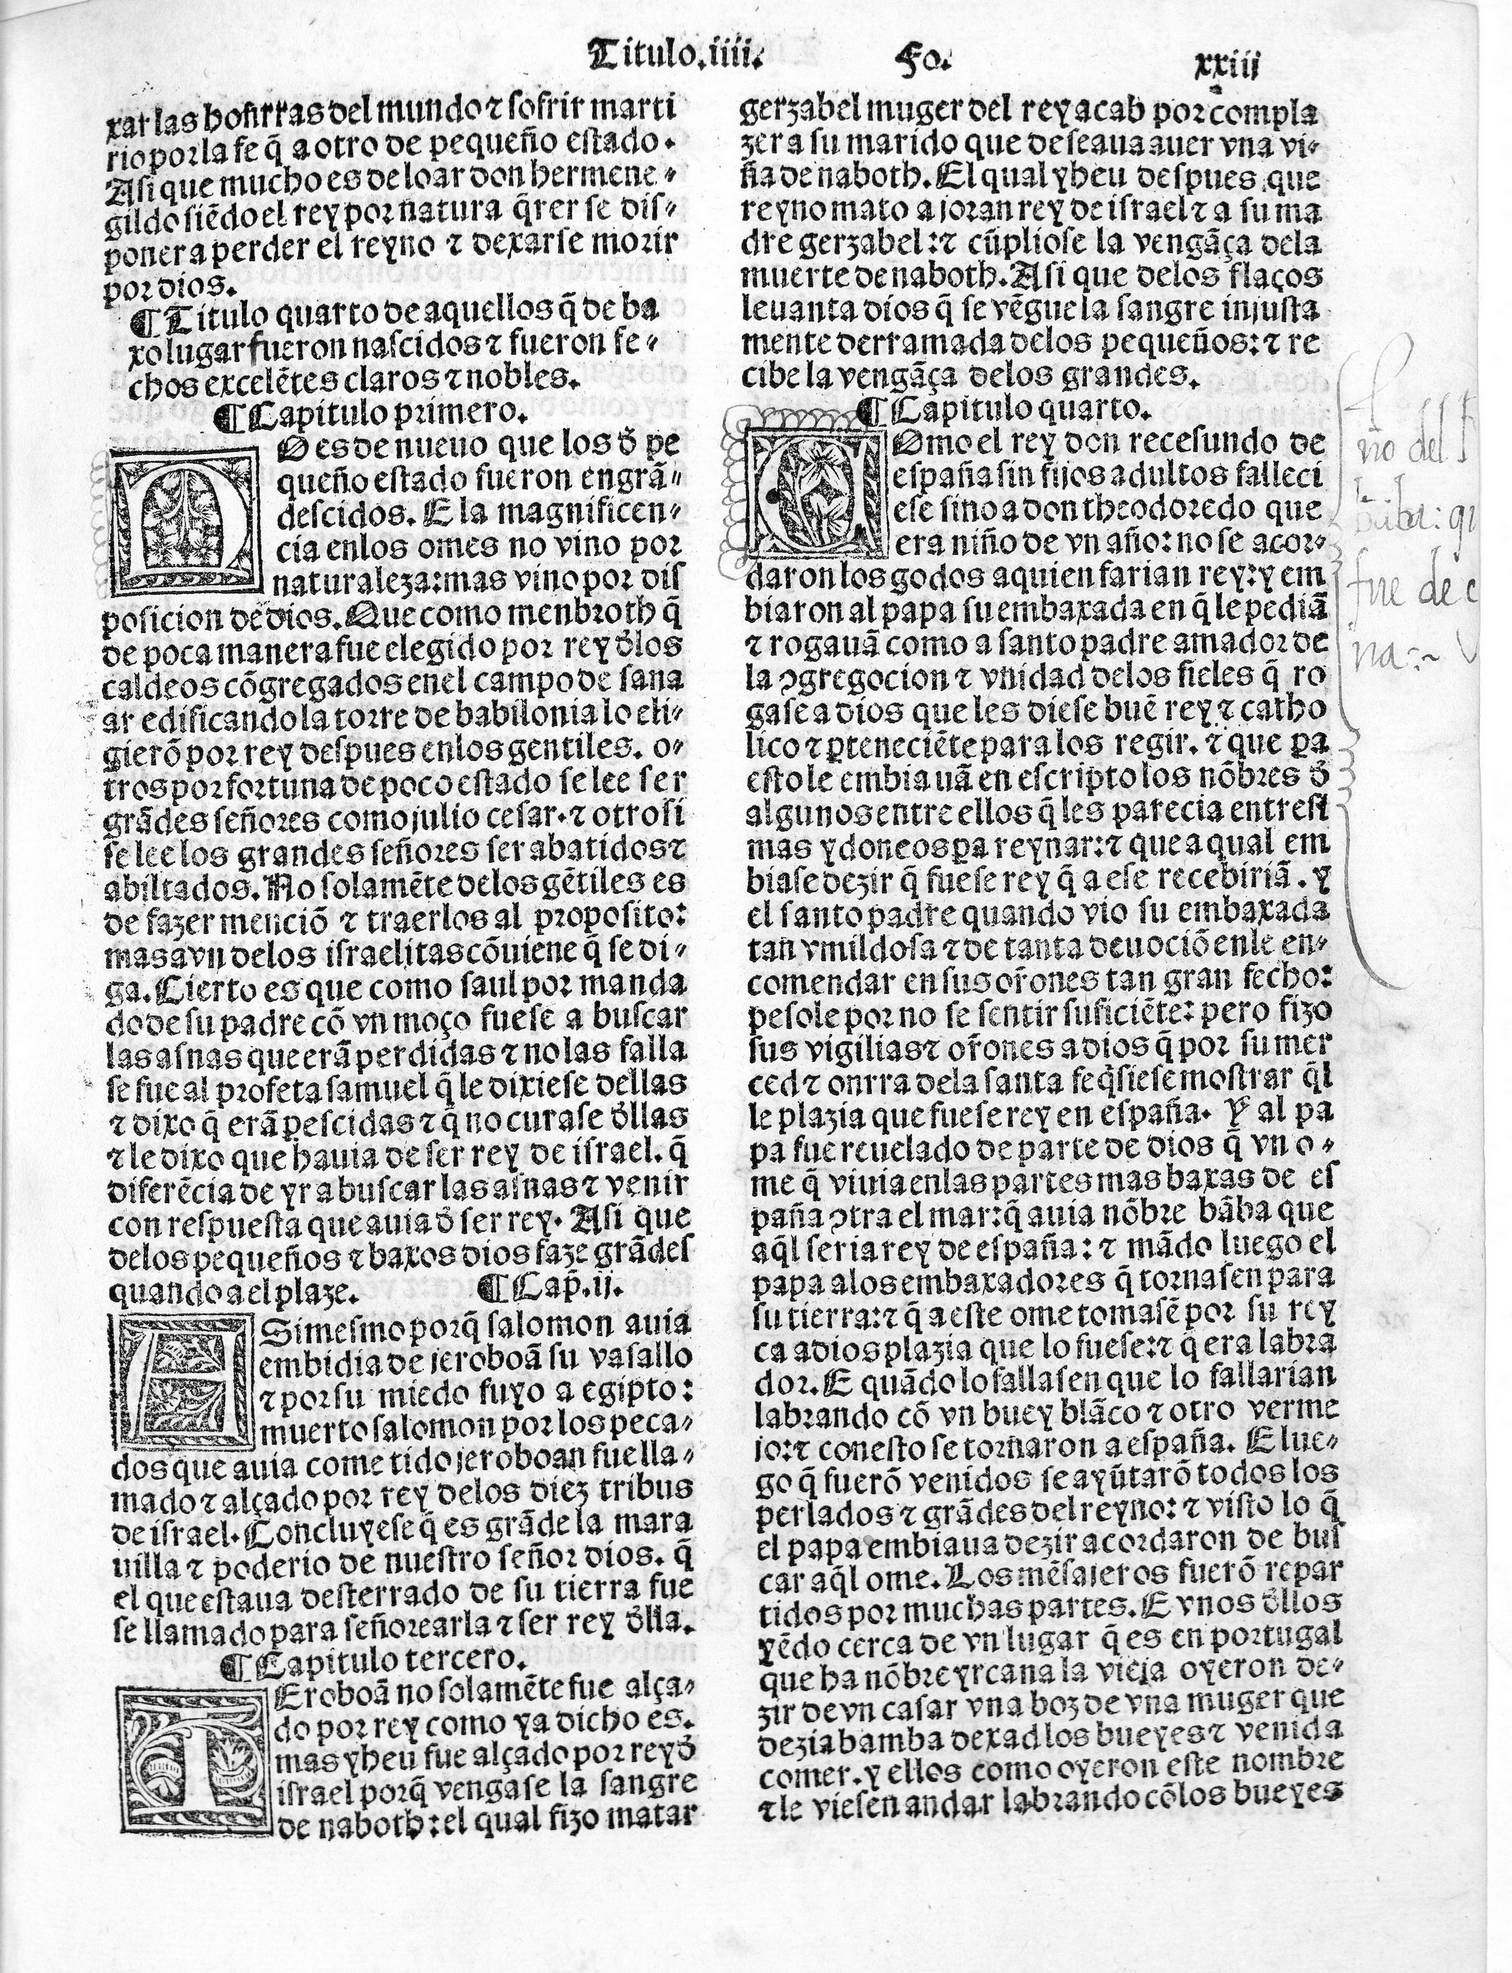 Titulo.iiii. Fo. xxiii
xar las honrras del mundo ⁊ sofrir marti
rio por la fe q̃ a otro de pequeño estado.
Asi que mucho es de loar don hermene-
gildo siẽdo el rey por natura q̃rer se dis-
poner a perder el reyno ⁊ dexarse morir
por dios.
¶Titulo quarto de aquellos q̃ de ba
xo lugar fueron nascidos ⁊ fueron fe-
chos excelẽtes claros ⁊ nobles.
¶Capitulo primero.
NO es de nueuo que los đ pe
queño estado fueron engrã-
descidos. E la magnificen-
cia enlos omes no vino por
naturaleza: mas vino por dis
posicion de dios. Que como menbroth q̃
de poca manera fue elegido por rey đlos
caldeos cõgregados enel campo de sana
ar edificando la torre de babilonia lo eli-
gierõ por rey despues enlos gentiles. o-
tros por fortuna de poco estado se lee ser
grãdes señores como julio cesar. ⁊ otrosi
se lee los grandes señores ser abatidos ⁊
abiltados. No solamẽte delos gẽtiles es
de fazer menciõ ⁊ traerlos al proposito:
mas avn delos israelitas cõuiene q̃ se di-
ga. Cierto es que como saul por manda
do de su padre cõ vn moço fuese a buscar
las asnas que erã perdidas ⁊ no las falla
se fue al profeta samuel q̃ le dixiese dellas
⁊ dixo q̃ erã ꝑescidas ⁊ q̃ no curase đllas
⁊ le dixo que hauia de ser rey de israel. q̃
diferẽcia de yr a buscar las asnas ⁊ venir
con respuesta que auia đ ser rey. Asi que
delos pequeños ⁊ baxos dios faze grãdes
quando a el plaze. ¶Cap̃.ij.
ASimesmo porq̃ salomon auia
embidia de jeroboã su vasallo
⁊ por su miedo fuyo a egipto:
muerto salomon por los peca-
dos que auia cometido jeroboan fue lla-
mado ⁊ alçado por rey delos diez tribus
de israel. Concluyese q̃ es grãde la mara
uilla ⁊ poderio de nuestro señor dios. q̃
el que estaua desterrado de su tierra fue
se llamado para señorearla ⁊ ser rey đlla.
¶Capitulo tercero.
IEroboã no solamẽte fue alça-
do por rey como ya dicho es.
mas yheu fue alçado por rey đ
israel porq̃ vengase la sangre
de naboth: el qual fizo matar
gerzabel muger del rey acab por compla
zer a su marido que deseaua auer vna vi-
ña de naboth. El qual yheu despues que
reyno mato a joran rey de israel ⁊ a su ma
dre gerzabel: ⁊ cũpliose la vengãça dela
muerte de naboth. Asi que delos flaços
leuanta dios q̃ se vẽgue la sangre injusta
mente derramada delos pequeños: ⁊ re
cibe la vengãça delos grandes.
¶Capitulo quarto.
COmo el rey don recesundo de
españa sin fijos adultos falleci
ese sino a don theodoredo que
era niño de vn año: no se acor-
daron los godos a quien farian rey: y em
biaron al papa su embaxada en q̃ le pediã
⁊ rogauã como a santo padre amador de
la ꝯgregocion ⁊ vnidad delos fieles q̃ ro
gase a dios que les diese buẽ rey ⁊ catho
lico ⁊ ꝑteneciẽte para los regir. ⁊ que ꝑa
esto le embiauã en escripto los nõbres đ
algunos entre ellos q̃ les parecia entresi
mas ydoneos ꝑa reynar: ⁊ que a qual em
biase dezir q̃ fuese rey q̃ a ese recebiriã. Y
el santo padre quando vio su embaxada
tan vmildosa ⁊ de tanta deuociõ enle en-
comendar en sus or̃ones tan gran fecho:
pesole por no se sentir suficiẽte: pero fizo
sus vigilias ⁊ or̃ones a dios q̃ por su mer
ced ⁊ onrra dela santa fe q̃siese mostrar q̃l
le plazia que fuese rey en españa. Y al pa
pa fue reuelado de parte de dios q̃ vn o-
me q̃ viuia enlas partes mas baxas de es
paña ꝯtra el mar: q̃ auia nõbre bãba que
aq̃l seria rey de españa: ⁊ mãdo luego el
papa alos embaxadores q̃ tornasen para
su tierra: ⁊ q̃ a este ome tomasẽ por su rey
ca a dios plazia que lo fuese: ⁊ q̃ era labra
dor. E quãdo lo fallasen que lo fallarian
labrando cõ vn buey blãco ⁊ otro verme
jo: ⁊ con esto se tornaron a españa. E lue-
go q̃ fuerõ venidos se ayũtarõ todos los
perlados ⁊ grãdes del reyno: ⁊ visto lo q̃
el papa embiaua dezir acordaron de bus
car aq̃l ome. Los mẽsajeros fuerõ repar
tidos por muchas partes. E vnos đllos
yẽdo cerca de vn lugar q̃ es en portugal
que ha nõbre yrcana la vieja oyeron de-
zir de vn casar vna boz de vna muger que
dezia bamba dexad los bueyes ⁊ venid a
comer. y ellos como oyeron este nombre
⁊ le viesen andar labrando cõlos bueyes
no del
fue de
na:~